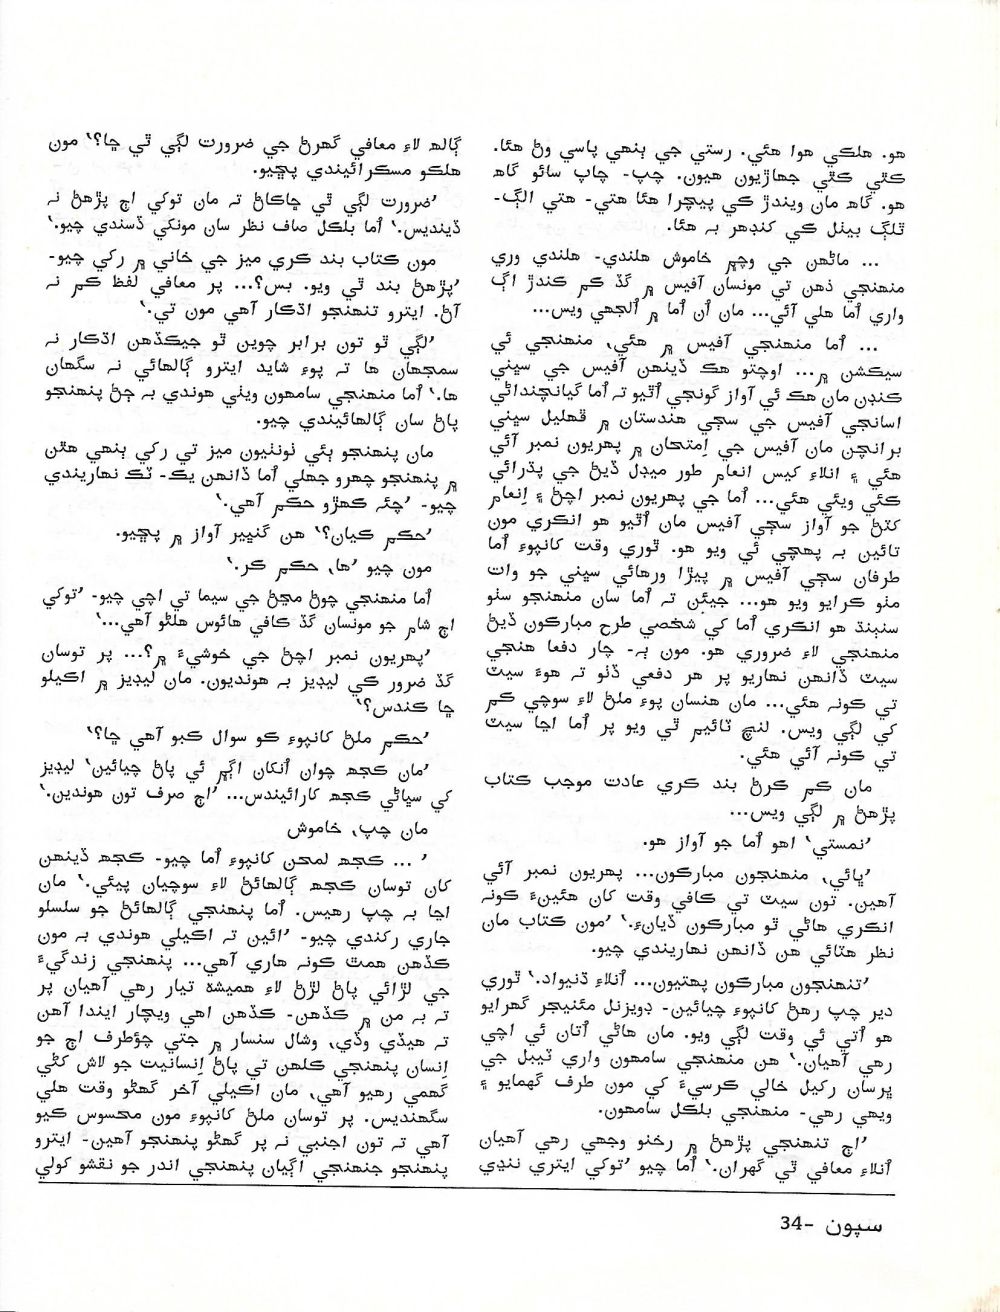 هو. هلڪي هوا هئي. رستي جي ٻنهي پاسي وڻ هئا.
ڪٿي ڪٿي جهاڙيون هيون. چپ- چاپ سائو گاهه
هو. گاهه مان ويندڙ ڪي پيچرا هئا هتي- هتي الڳ-
ٿلڳ بيٺل ڪي کنڊهر به هئا.
... ماڻهن جي وچ۾ خاموش هلندي- هلندي وري
منهنجي ذهن تي مونسان آفيس ۾ گڏ ڪم ڪندڙ اڳ
واري اُما هلي آئي... مان اُن اُما ۾ اُلجهي ويس...
... اُما منهنجي آفيس ۾ هئي، منهنجي ئي
سيڪشن ۾... اوچتو هڪ ڏينهن آفيس جي سڀني
ڪنڊن مان هڪ ئي آواز گونجي اُٿيو ته اُما گيانچنداڻي
اسانجي آفيس جي سڄي هندستان ۾ ڦهليل سڀني
برانچن مان آفيس جي اِمتحان ۾ پهريون نمبر آئي
هئي ۽ انلاءِ کيس انعام طور ميڊل ڏيڻ جي پڌرائي
ڪئي ويئي هئي... اُما جي پهريون نمبر اچڻ ۽ اِنعام
کٽڻ جو آواز سڄي آفيس مان اُٿيو هو انڪري مون
تائين به پهچي ئي ويو هو. ٿوري وقت کانپوءِ اُما
طرفان سڄي آفيس ۾ پيڙا ورهائي سڀني جو وات
مٺو ڪرايو ويو هو... جيئن ته اُما سان منهنجو سٺو
سنٻنڌ هو انڪري اُما کي شخصي طرح مبارڪون ڏيڻ
منهنجي لاءِ ضروري هو. مون ٻه- چار دفعا هنجي
سيٽ ڏانهن نهاريو پر هر دفعي ڏٺو ته هوءَ سيٽ
تي ڪونه هئي... مان هنسان پوءِ ملڻ لاءِ سوچي ڪم
کي لڳي ويس. لنچ ٽائيم ٿي ويو پر اُما اڃا سيٽ
تي ڪونه آئي هئي.
مان ڪم ڪرڻ بند ڪري عادت موجب ڪتاب
پڙهڻ ۾ لڳي ويس...
’نمستي‘ اهو اُما جو آواز هو.
’ڀائي، منهنجون مبارڪون... پهريون نمبر آئي
آهين. تون سيٽ تي ڪافي وقت کان هئينءَ ڪونه
انڪري هاڻي ٿو مبارڪون ڏيانءِ.‘ ’مون ڪتاب مان
نظر هٽائي هن ڏانهن نهاريندي چيو.
’تنهنجون مبارڪون پهتيون... اُنلاءِ ڌنيواد.‘ ٿوري
دير چپ رهڻ کانپوءِ چيائين- ڊويزنل مئنيجر گهرايو
هو اُتي ئي وقت لڳي ويو. مان هاڻي اُتان ئي اچي
رهي آهيان.‘ هن منهنجي سامهون واري ٽيبل جي
ڀرسان رکيل خالي ڪرسيءَ کي مون طرف گهمايو ۽
ويهي رهي- منهنجي بلڪل سامهون.
’اڄ تنهنجي پڙهڻ ۾ رخنو وجهي رهي آهيان
اُنلاءِ معافي ٿي گهران.‘ اُما چيو ’توکي ايتري ننڍي
ڳالهه لاءِ معافي گهرڻ جي ضرورت لڳي ٿي ڇا؟‘ مون
هلڪو مسڪرائيندي پڇيو.
’ضرورت لڳي ٿي ڇاڪاڻ ته مان توکي اڄ پڙهڻ نه
ڏينديس.‘ اُما بلڪل صاف نظر سان مونکي ڏسندي چيو.‘
مون ڪتاب بند ڪري ميز جي خاني ۾ رکي چيو-
’پڙهڻ بند ٿي ويو. بس؟... پر معافي لفظ ڪم نه
آڻ. ايترو تنهنجو اڌڪار آهي مون تي.‘
’لڳي ٿو تون برابر چوين ٿو جيڪڏهن اڌڪار نه
سمجهان ها ته پوءِ شايد ايترو ڳالهائي نه سگهان
ها.‘ اُما منهنجي سامهون ويٺي هوندي به ڄڻ پنهنجو
پاڻ سان ڳالهائيندي چيو.
مان پنهنجو ٻئي ٺونٺيون ميز تي رکي ٻنهي هٿن
۾ پنهنجو چهرو جهلي اُما ڏانهن يڪ- ٽڪ نهاريندي
چيو- ’چئه ڪهڙو حڪم آهي.‘
’حڪم ڪيان؟‘ هن گنڀير آواز ۾ پڇيو.
مون چيو ’ها، حڪم ڪر.‘
اُما منهنجي چوڻ مڃڻ جي سيما تي اچي چيو- ’توکي
اڄ شام جو مونسان گڏ ڪافي هائوس هلڻو آهي...‘
’پهريون نمبر اچڻ جي خوشيءَ ۾؟... پر توسان
گڏ ضرور ڪي ليڊيز به هونديون. مان ليڊيز ۾ اڪيلو
ڇا ڪندس؟‘
’حڪم ملڻ کانپوءِ ڪو سوال ڪبو آهي ڇا؟‘
’مان ڪجهه چوان اُنکان اڳ۾ ئي پاڻ چيائين‘ ليڊيز
کي سڀاڻي ڪجهه کارائيندس... ’اڄ صرف تون هوندين.‘
مان چپ، خاموش
’ ... ڪجهه لمحن کانپوءِ اُما چيو- ڪجهه ڏينهن
کان توسان ڪجهه ڳالهائڻ لاءِ سوچيان پيئي.‘ مان
اڃا به چپ رهيس. اُما پنهنجي ڳالهائڻ جو سلسلو
جاري رکندي چيو- ’ائين ته اڪيلي هوندي به مون
ڪڏهن همٿ ڪونه هاري آهي... پنهنجي زندگيءَ
جي لڙائي پاڻ لڙڻ لاءِ هميشہ تيار رهي آهيان پر
ته به من ۾ ڪڏهن- ڪڏهن اهي ويچار ايندا آهن
ته هيڏي وڏي، وشال سنسار ۾ جتي چؤطرف اڄ جو
اِنسان پنهنجي ڪلهن تي پاڻ اِنسانيت جو لاش کڻي
گهمي رهيو آهي، مان اڪيلي آخر گهڻو وقت هلي
سگهنديس. پر توسان ملڻ کانپوءِ مون محسوس ڪيو
آهي ته تون اجنبي نه پر گهڻو پنهنجو آهين- ايترو
پنهنجو جنهنجي اڳيان پنهنجي اندر جو نقشو کولي
سپون -34